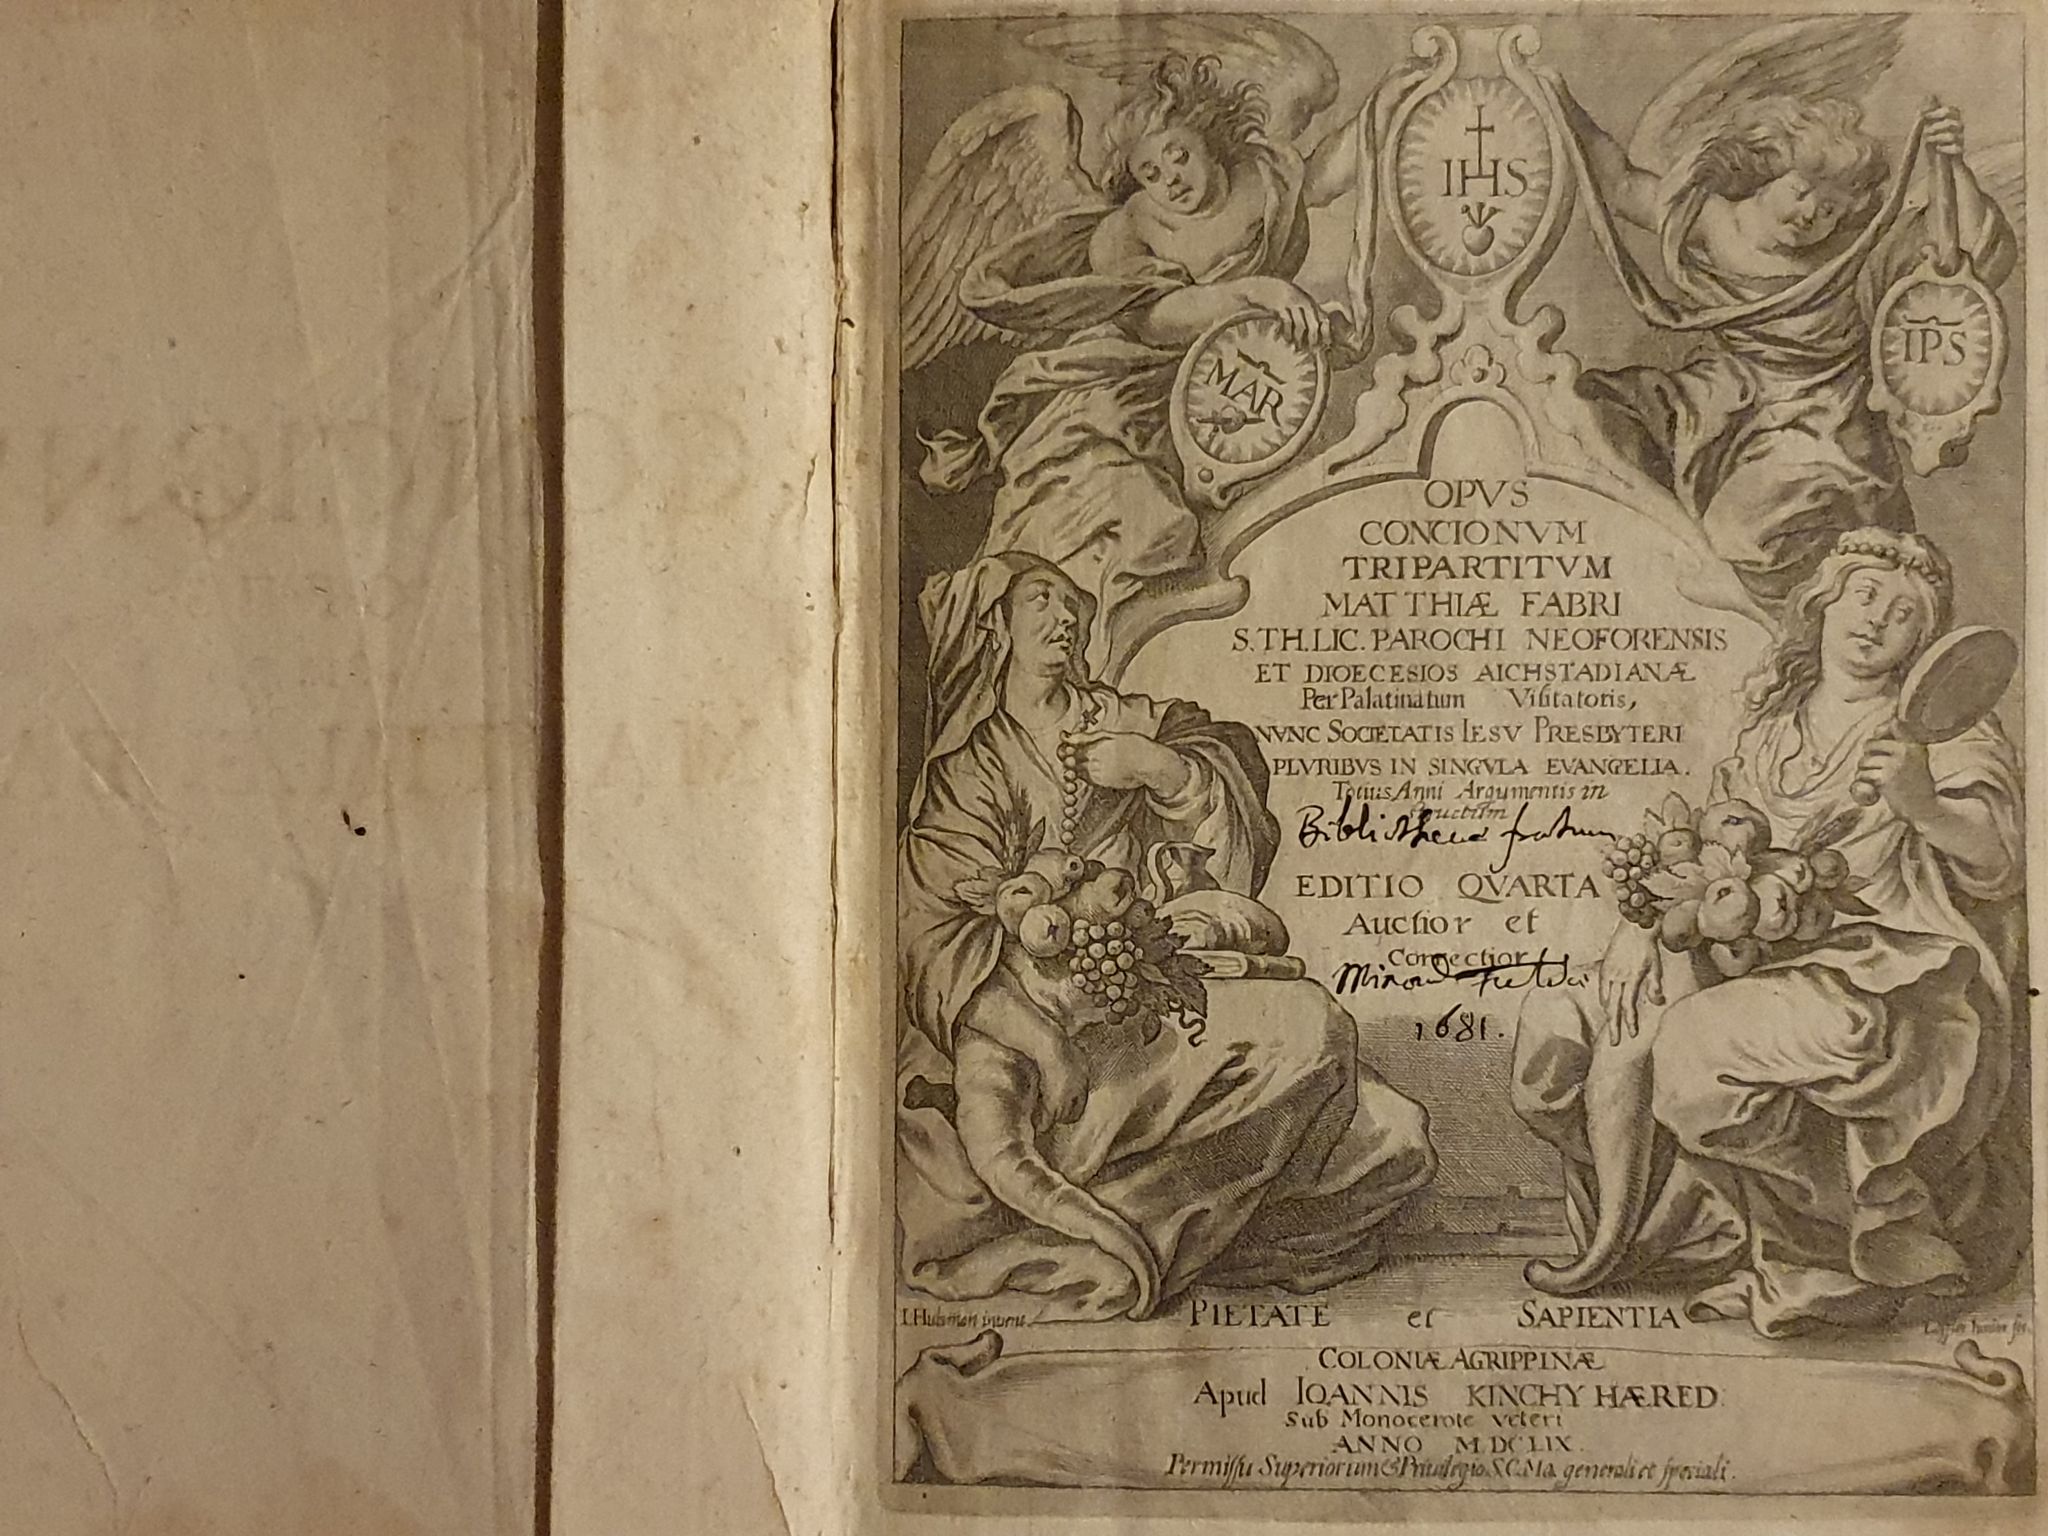 IHS
IPS
MAR
OPVS
CONCIONVM
TRIPARTITVM
MATTHIÆ FABRI
S. TH. LIC. PAROCHI NEOFORENSIS
ET DIOECESIOS AICHSTADIANÆ
Per Palatinatum Visitatoris,
NVNC SOCIETATIS IESV PRESBYTERI
PLVRIBVS IN SINGVLA EVANGELIA.
Totius Anni Argumentis in
structum
Bibliotheca fratrum
EDITIO QVARTA
Auctior et
Correctior
Minorum
1681.
I. Hulsman invent.
PIETATE et SAPIENTIA
Löffler Iunior fec.
COLONIÆ AGRIPPINÆ
Apud IOANNIS KINCHY HÆRED.
Sub Monocerote veteri
ANNO M.DCLIX.
Permissu Superiorum & Privilegio S.C.Ma. generali et speciali.